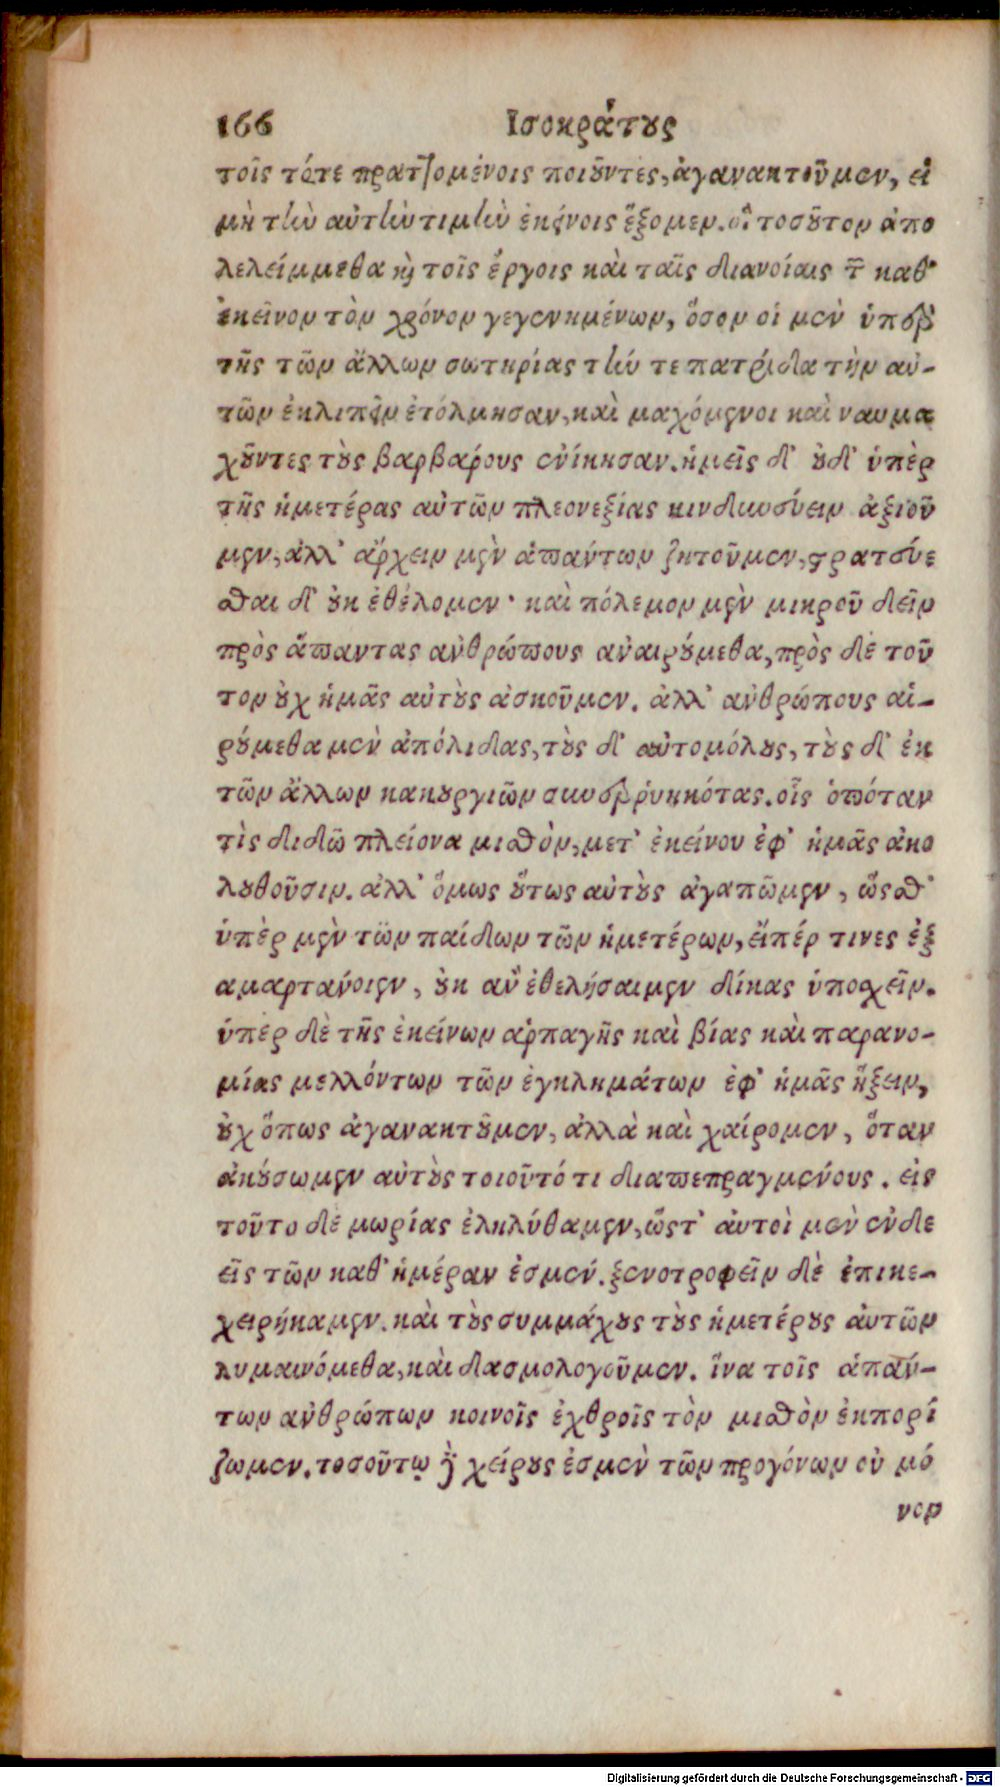 166 Ἰσοκράτους
τοῖς τότε πραττομένοις ποιοῦντες, ἀγανακτοῦμεν, εἰ
μὴ τὴν αὐτὴν τιμὴν ἐκείνοις ἕξομεν. οἳ τοσοῦτον ἀπο
λελείμμεθα καὶ τοῖς ἔργοις καὶ ταῖς διανοίαις τῶν καθ'
ἐκεῖνον τὸν χρόνον γεγενημένων, ὅσον οἱ μὲν ὑπὲρ
τῆς τῶν ἄλλων σωτηρίας τήν τε πατρίδα τὴν αὑ-
τῶν ἐκλιπεῖν ἐτόλμησαν, καὶ μαχόμενοι καὶ ναυμα
χοῦντες τοὺς βαρβάρους ἐνίκησαν. ἡμεῖς δ' οὐδ' ὑπὲρ
τῆς ἡμετέρας αὐτῶν πλεονεξίας κινδυνεύειν ἀξιοῦ
μεν, ἀλλ' ἄρχειν μὲν ἁπάντων ζητοῦμεν, στρατεύε
σθαι δ' οὐκ ἐθέλομεν· καὶ πόλεμον μὲν μικροῦ δεῖν
πρὸς ἅπαντας ἀνθρώπους ἀναιρούμεθα, πρὸς δὲ τοῦ
τον οὐχ ἡμᾶς αὐτοὺς ἀσκοῦμεν. ἀλλ' ἀνθρώπους αἱ-
ρούμεθα μὲν ἀπόλιδας, τοὺς δ' αὐτομόλους, τοὺς δ' ἐκ
τῶν ἄλλων κακουργιῶν συνερρυηκότας. οἷς ὁπόταν
τὶς διδῶ πλείονα μισθὸν, μετ' ἐκείνου ἐφ' ἡμᾶς ἀκο
λουθοῦσιν. ἀλλ' ὅμως οὕτως αὐτοὺς ἀγαπῶμεν, ὥσθ'
ὑπὲρ μὲν τῶν παίδων τῶν ἡμετέρων, εἴπέρ τινες ἐξ
αμαρτάνοιεν, οὐκ ἂν ἐθελήσαιμεν δίκας ὑποσχεῖν.
ὑπὲρ δὲ τῆς ἐκείνων ἁρπαγῆς καὶ βίας καὶ παρανο-
μίας μελλόντων τῶν ἐγκλημάτων ἐφ' ἡμᾶς ἥξειν,
οὐχ ὅπως ἀγανακτοῦμεν, ἀλλὰ καὶ χαίρομεν, ὅταν
ἀκούσωμεν αὐτοὺς τοιοῦτό τι διαπεπραγμένους. εἰς
τοῦτο δὲ μωρίας ἐληλύθαμεν, ὥστ' αὐτοὶ μὲν ἐνδε
εῖς τῶν καθ' ἡμέραν ἐσμέν. ξενοτροφεῖν δὲ ἐπικε-
χειρήκαμεν. καὶ τοὺς συμμάχους τοὺς ἡμετέρους αὐτῶν
λυμαινόμεθα, καὶ δασμολογοῦμεν. ἵνα τοῖς ἁπάν-
των ἀνθρώπων κοινοῖς ἐχθροῖς τὸν μισθὸν ἐκπορί
ζωμεν. τοσούτῳ δὲ χείρους ἐσμὲν τῶν προγόνων οὐ μό
νον
Digitalisierung gefördert durch die Deutsche Forschungsgemeinschaft - DFG